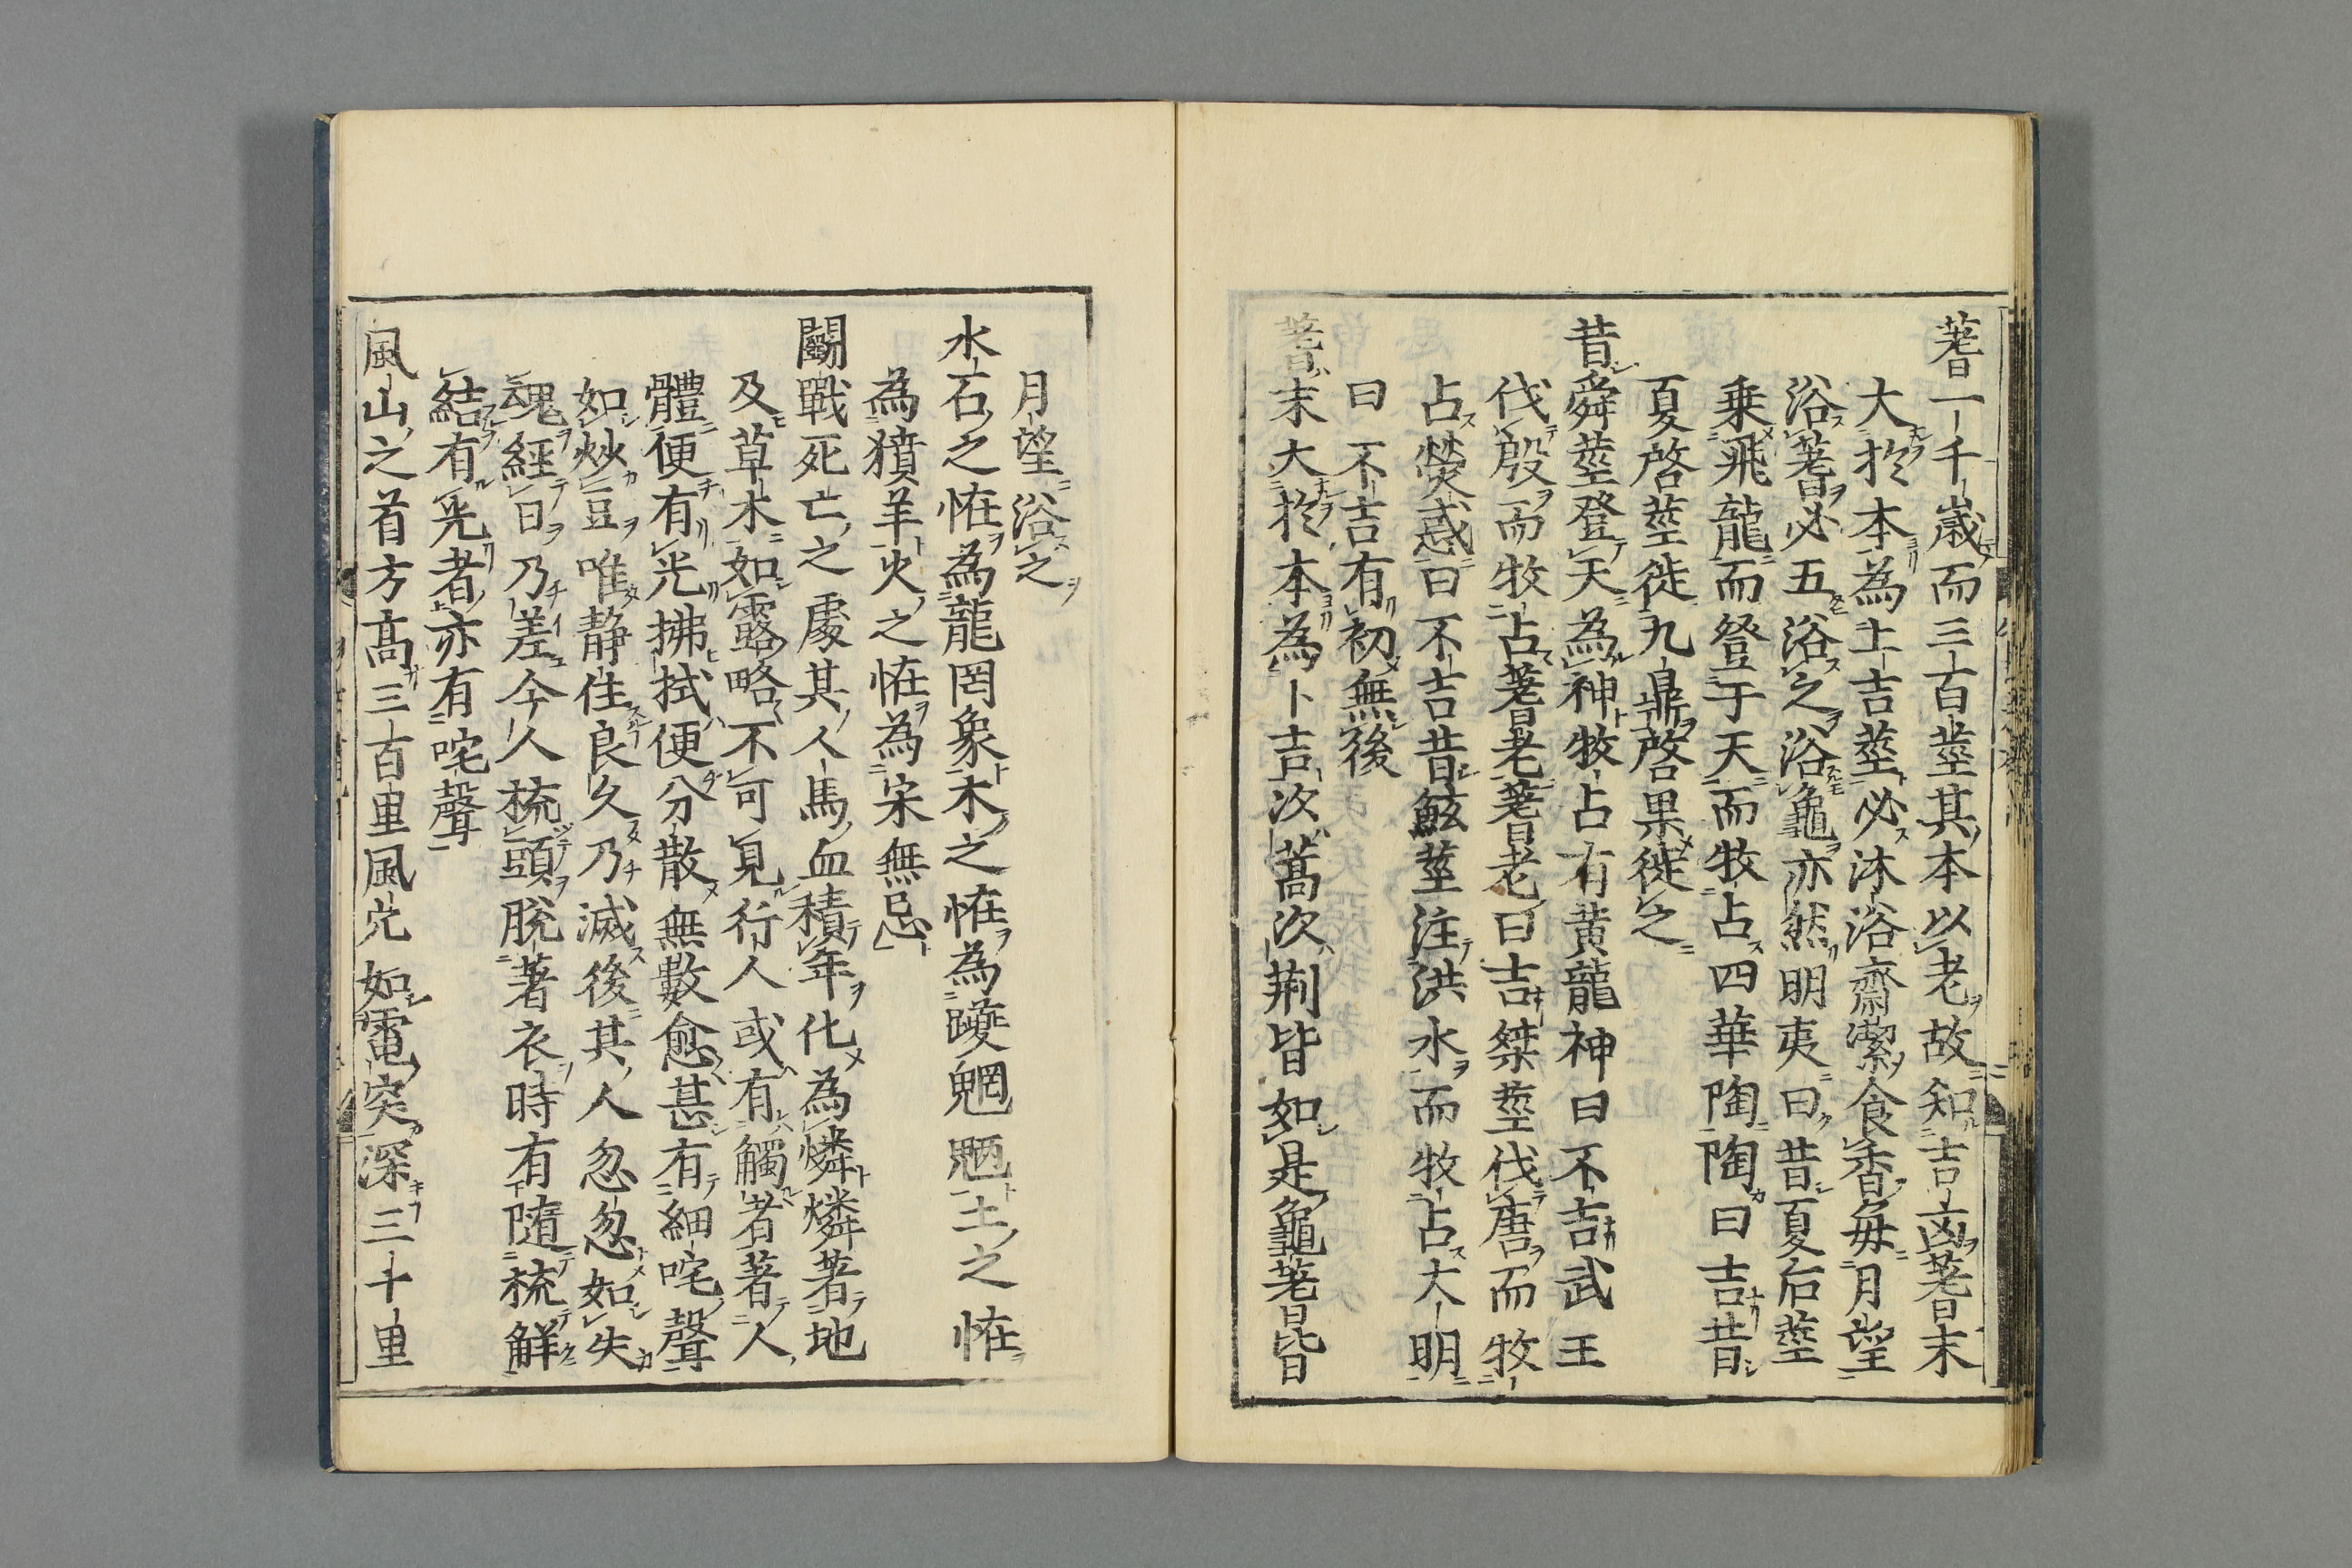 蓍一千歳而三百莖其本以老故知吉凶蓍末
大於本為上吉莖必沐浴齋潔食香毎月望
浴蓍必五浴之浴龜亦然明夷曰昔夏后莖
乗飛龍而登于天而牧占四華陶陶曰吉昔
夏啓莖徙九鼎啓果徙之
昔舜莖登天為神牧占有黄龍神曰不吉武王
伐殷而牧占蓍老蓍老曰吉桀莖伐唐而牧
占熒惑曰不吉昔鮌莖注洪水而牧占大明
曰不吉有初無後
蓍末大於本為卜吉次蒿次荆皆如是龜蓍皆
月望浴之
水石之恠為龍罔象木之恠為躨魍魎土之恠
為獖羊火之恠為宋無忌
鬬戰死亡之處其人馬血積年化為燐燐著地
及草木如露略不可見行人或有觸者著人
體便有光拂拭便分散無數愈甚有細咤聲
如炒豆唯静住良久乃滅後其人忽忽如失
魂經日乃差今人梳頭脱著衣時有隨梳解
結有光者亦有咤聲
風山之首方高三百里風穴如電突深三十里